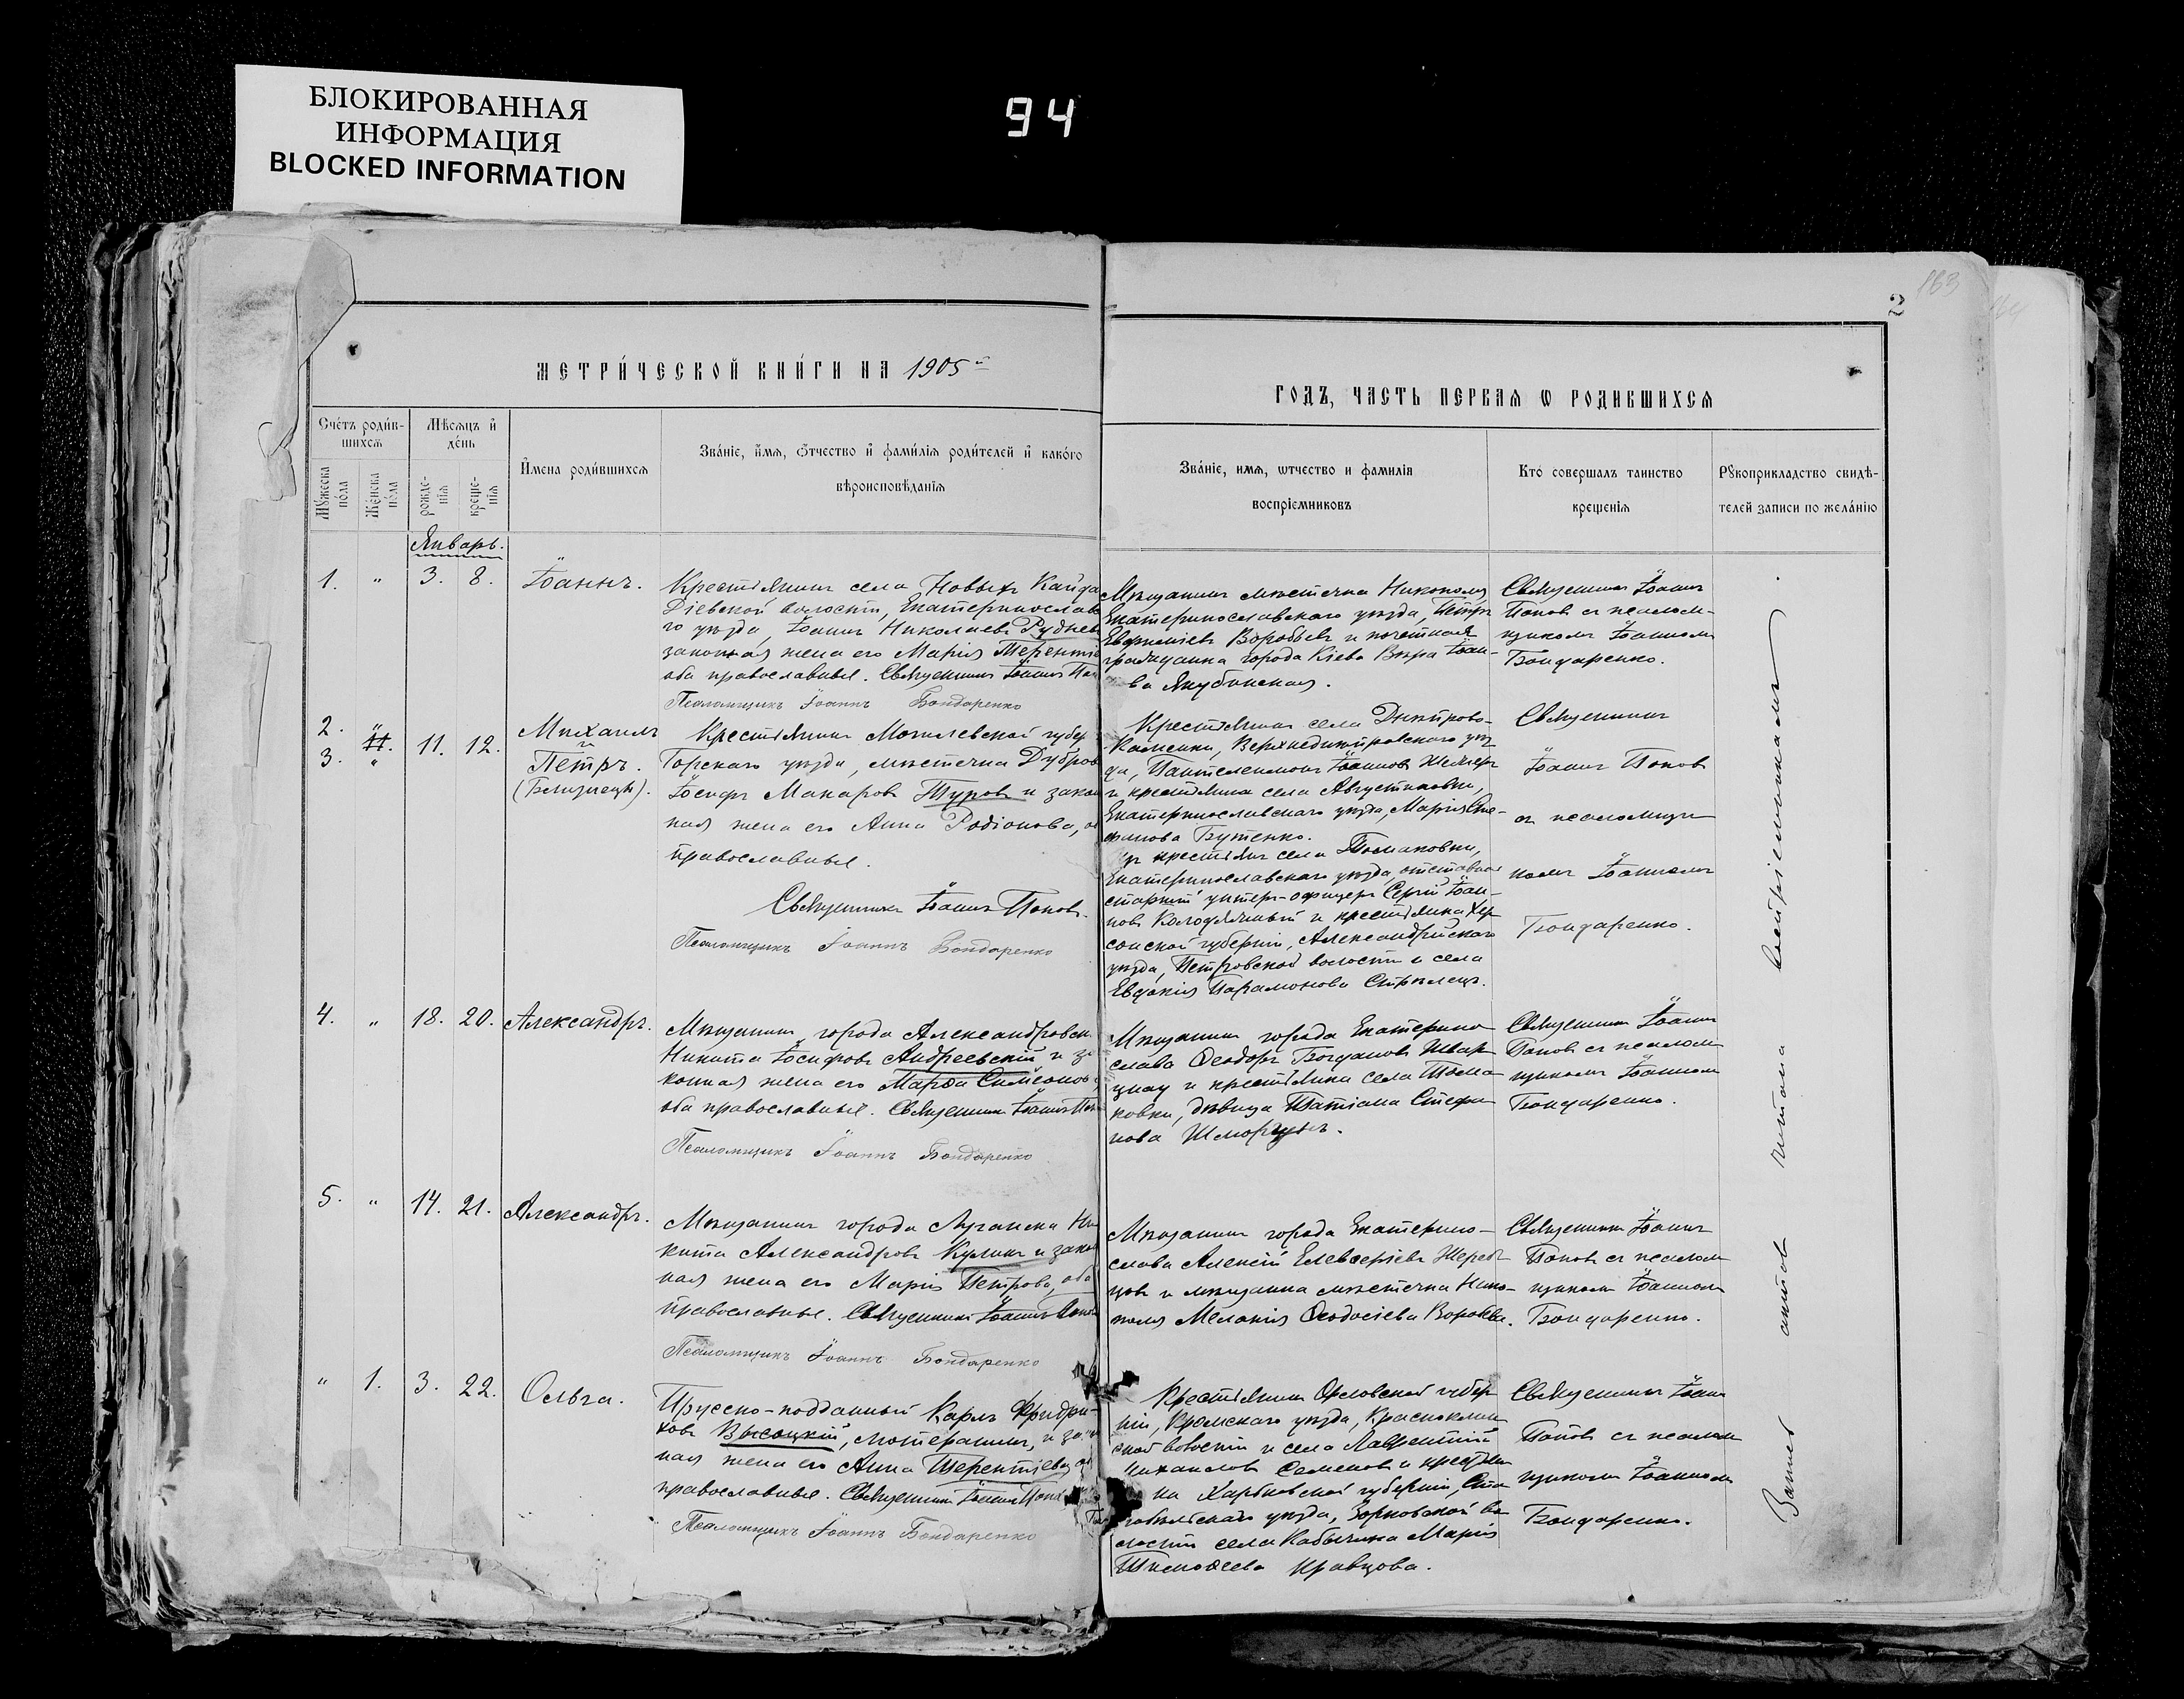 БЛОКИРОВАННАЯ
ИНФОРМАЦИЯ
BLOCKED INFORMATION
94
163
2
МЕТРИ́ЧЕСКОЙ КНИ́ГИ НА 1905й
ГОДЪ, ЧАСТЬ ПЕРВАѦ Ѡ РОДИВШИХСѦ
Сче́тъ роди́в-
шихсѧ
Мѣсѧцъ и҆
де́нь
Мꙋ́жеска
по́ла
Же́нска
по́ла
рожде-
нїѧ
креще-
нїѧ
И҆мена роди́вшихсѧ
Зва́нїе, и҆́мѧ, ѻ҆́тчество и҆ фами́лїѧ роди́телей и҆ како́го
вѣроисповѣ́данїѧ
Зва́нїе, имѧ, ѡтчество и фамилїѧ
воспрїемниковъ
Кто́ совершалъ таинство
крещенїѧ
Рꙋкоприкладство свидѣ-
телей записи по жела́нїю
Январь.
1. " 3. 8. Іоаннъ.
Крестьянинъ села Новыхъ Кайда
діевской волости, Екатеринослав
го уѣзда, Іоаннъ Николаевъ Руднев
законная жена его Марія Терентіе
оба православные. Священникъ Іоаннъ Поп
Псаломщикъ Іоаннъ Бондаренко
Мѣщанинъ мѣстечка Никополя,
Екатеринославскаго уѣзда, Петръ
Евфиміевъ Воробьевъ и почетная
гражданка города Кіева Вѣра Іоан-
ва Якубинская.
Священникъ Іоаннъ
Поповъ съ псалом-
щикомъ Іоанномъ
Бондаренко.
2. "
3. " 11. 12.
Михаилъ
и
Петръ.
(Близнецы).
Крестьянинъ Могилевской губер
Горскаго уѣзда, мѣстечка Дубров
Іосифъ Макаровъ Туровъ и закон
ная жена его Анна Родіонова, об
православные.
Священникъ Іоаннъ Поповъ.
Псаломщикъ Іоаннъ Бондаренко
Крестьянинъ села Днѣпрово-
Каменки, Верхнеднѣпровскаго уѣз
да, Пантелеимонъ Іоанновъ
и крестьянка села Августиновки,
Екатеринославскаго уѣзда, Марія Сте-
фанова Бутенко.
крестьян села Томаковки,
Екатеринославскаго уѣзда, отставной
старшій унтеръ-офицеръ Сергій Іоан-
новъ Колодяжный и крестьянка Хер
сонской губерніи, Александрійскаго
уѣзда, Петровской волости и села
Евдокія Парамонова Стрѣлецъ.
Священникъ
Іоаннъ Поповъ
съ псаломщи
комъ Іоанномъ
Бондаренко.
4. " 18. 20. Александръ.
Мѣщанинъ города Александровск
Никита Іосифовъ Андреевскій и за
конная жена его Марфа Симеонов
оба православные. Священникъ Іоаннъ Поп
Псаломщикъ Іоаннъ Бондаренко
Мѣщанинъ города Екатерино
слава Ѳеодоръ Богдановъ Швар
цнау и крестьянка села Тома
ковки, дѣвица Татіана Стефа
нова Шморгунъ.
Священникъ Іоаннъ
Поповъ съ псалом
щикомъ Іоанномъ
Бондаренко.
5. " 14. 21. Александръ.
Мѣщанинъ города Луганска Ни
кита Александровъ Кулинъ и закон
ная жена его Марія Петрова, оба
православные. Священникъ Іоаннъ Попов
Псаломщикъ Іоаннъ Бондаренко
Мѣщанинъ города Екатерино-
слава Алексій Елевѳеріевъ Жереб
цовъ и мѣщанка мѣстечка Нико-
поля Меланія Ѳеодосіева Воробьева.
Священникъ Іоаннъ
Поповъ съ псалом
щикомъ Іоанномъ
Бондаренко.
" 1. 3. 22. Ольга.
Прусско-подданный Карлъ Фридри-
ховъ Высоцкій, лютеранинъ, и закон
ная жена его Анна Терентіева
православные. Священникъ Іоаннъ Попов
Псаломщикъ Іоаннъ Бондаренко
Крестьянинъ Орловской губер
ніи, Кромскаго уѣзда,
ской волости и села Лаврентій
Михаиловъ Семеновъ и крестьян
ка Харьковской губерніи, Ста
робѣльскаго уѣзда, во
лости села Марія
Тимоѳеева Кравцова.
Священникъ Іоаннъ
Поповъ съ псалом
щикомъ Іоанномъ
Бондаренко.
актов читана воспріемникамъ.